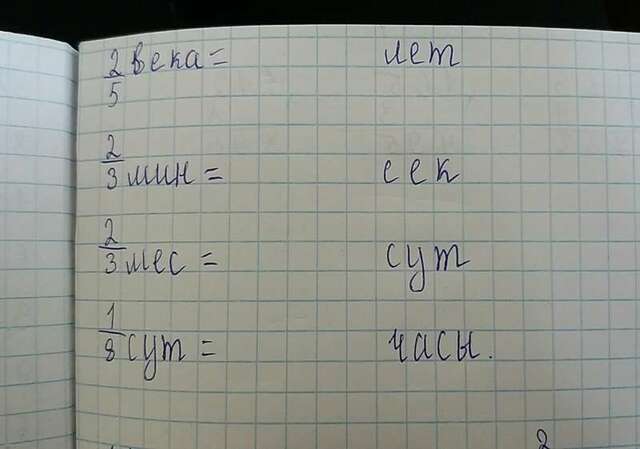 2/5 века = лет
2/3 мин = сек
2/3 мес = сут
1/8 сут = часы.
2